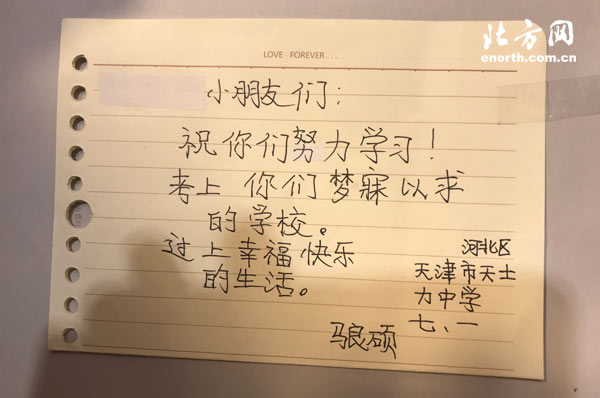 北方网
enorth.com.cn
LOVE FOREVER...
小朋友们：
祝你们努力学习！
考上你们梦寐以求
的学校。
过上幸福快乐
的生活。
河北区
天津市天士
力中学
七、一
马良硕